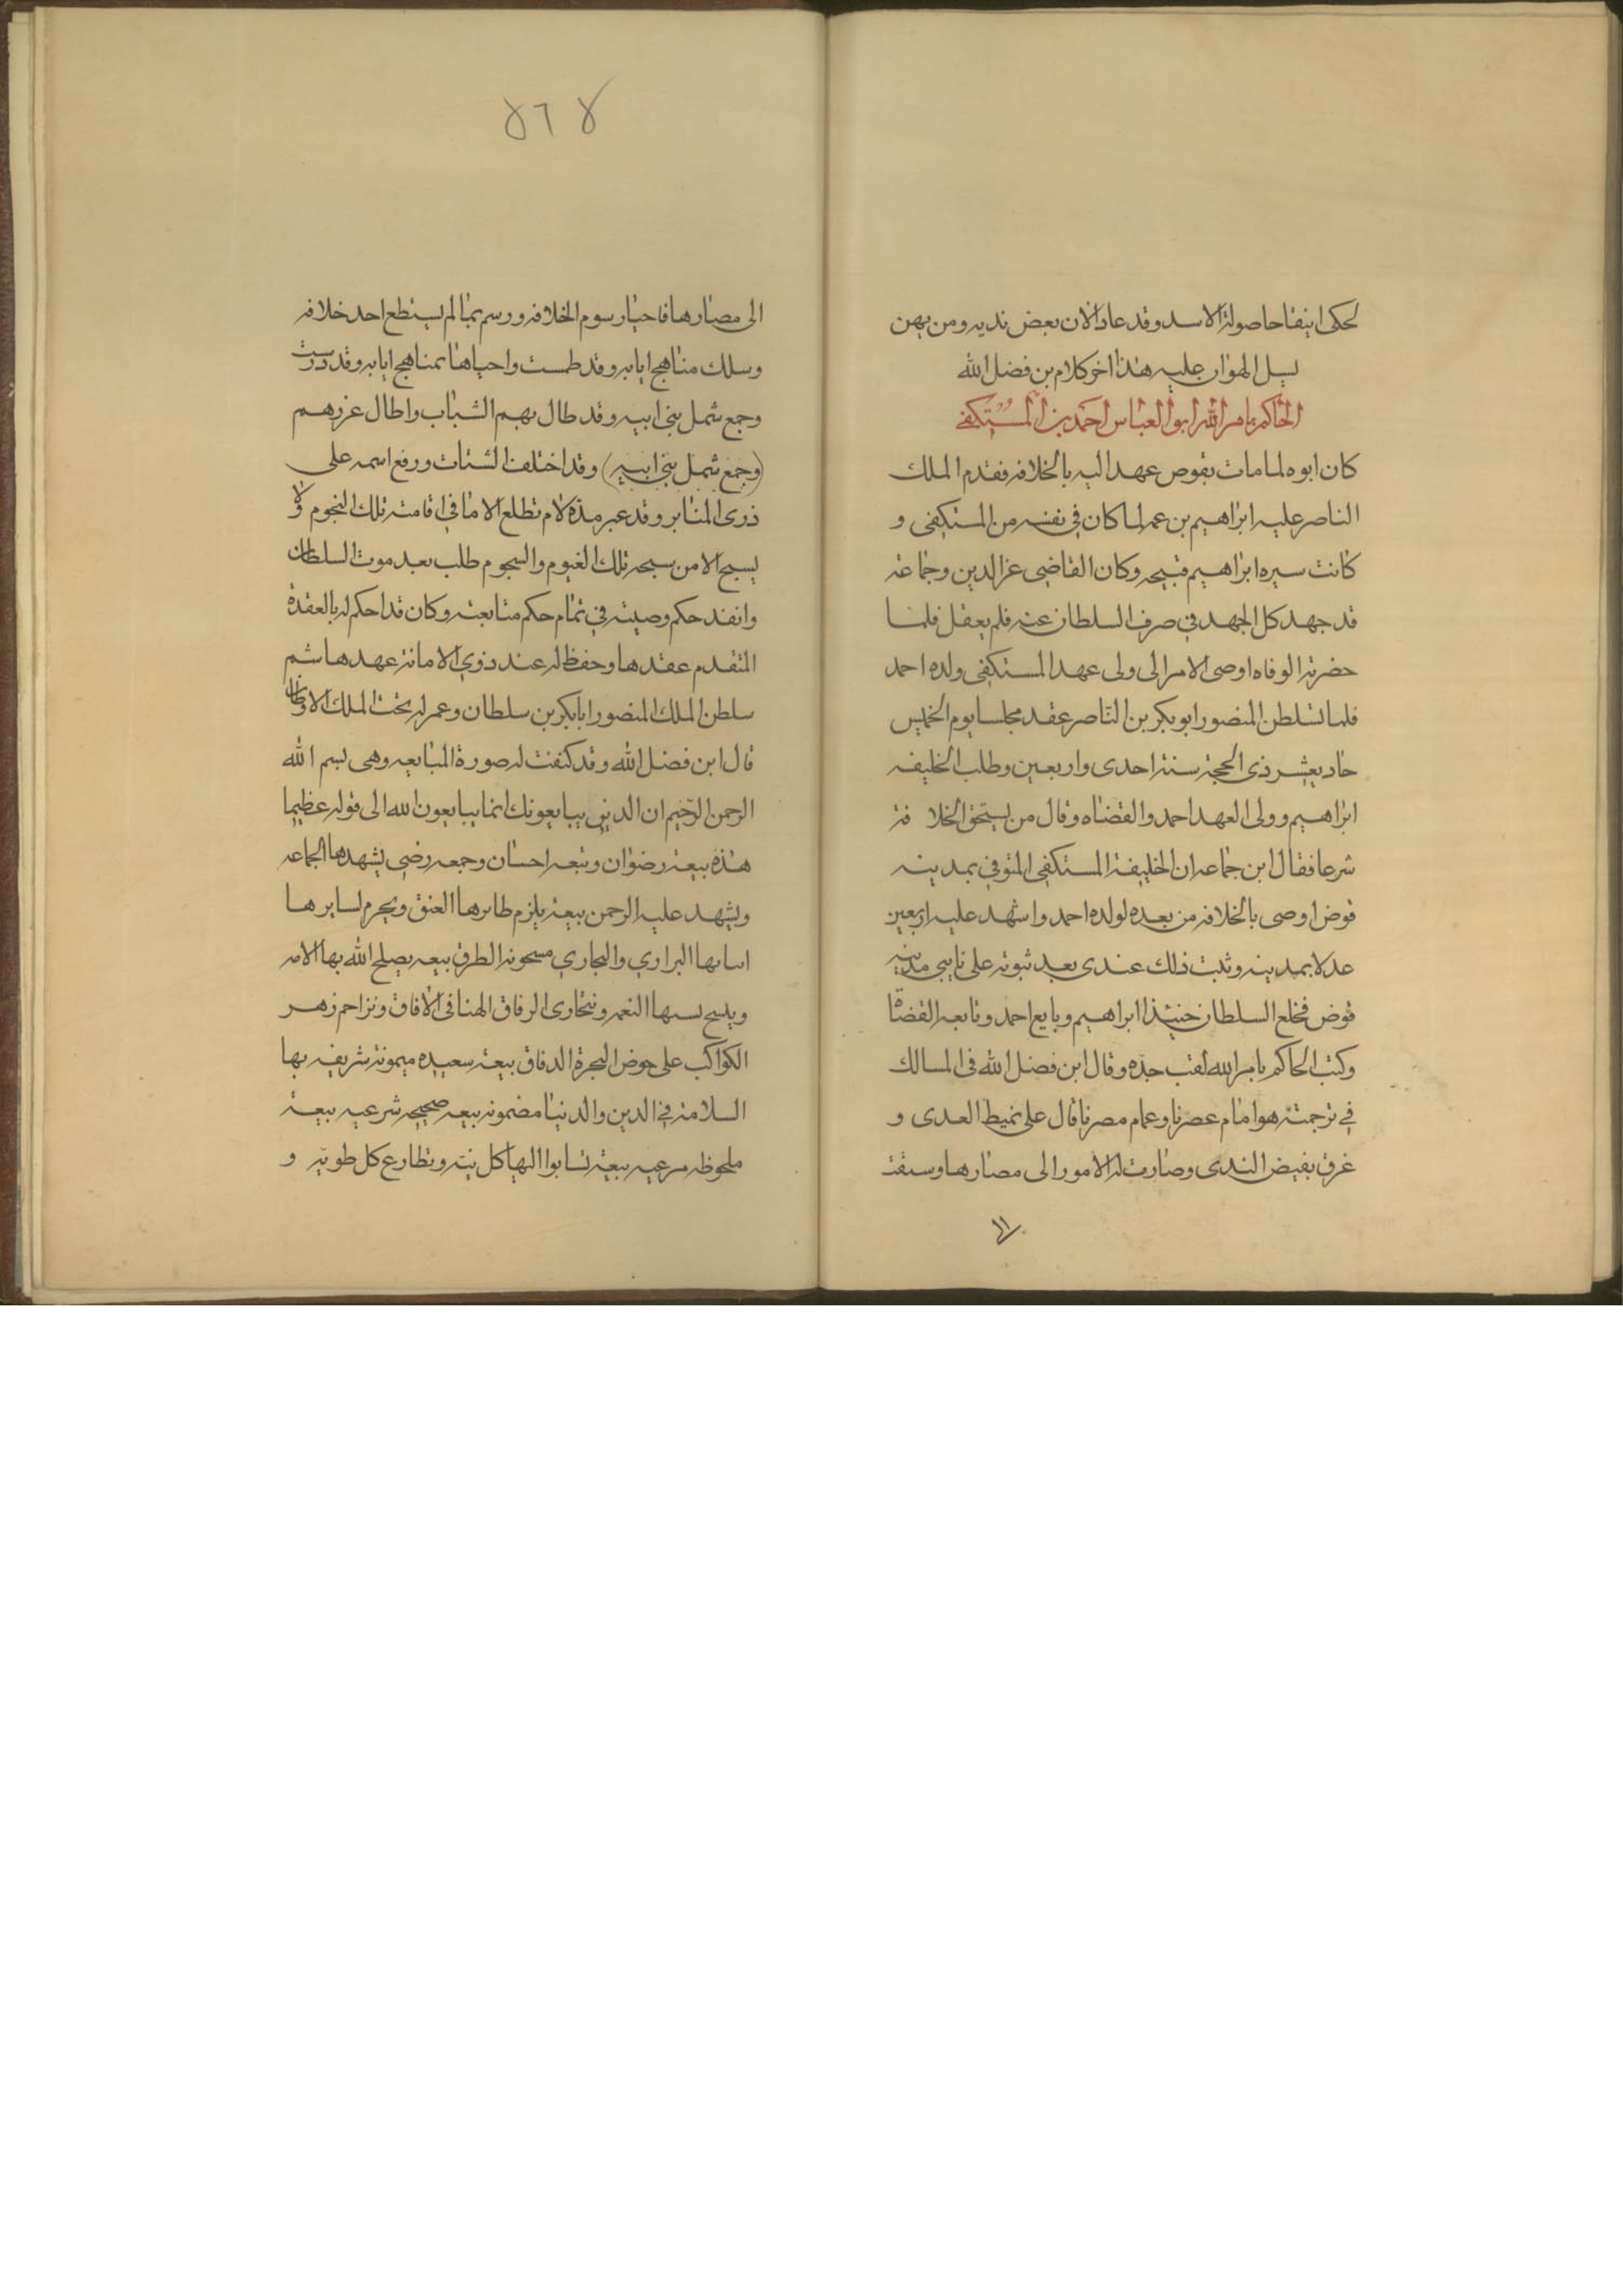 لحكى اينفا حاصولة الاسد وقد عاد الان بعض نديه ومن يهن
يسل الهوان عليه هذا اخر كلام بن فضل الله
الحاكم بامر الله ابو العباس احمد بن المستكفي
كان ابوه لما مات بقوص عهد اليه بالخلافه فقدم الملك
الناصر عليه ابراهيم بن عمه لما كان في نفسه من المستكفى و
كانت سيره ابراهيم قبيحه وكان القاضي عز الدين وجماعة
قد جهد كل الجهد في صرف السلطان عنه فلم يعقل فلما
حضرته الوفاه اوصى الامر الى ولى عهد المستكفى ولده احمد
فلما تسلطن المنصور ابو بكر بن الناصر عقد مجلسا يوم الخميس
حاد يعشر ذى الحجة سنة احدى واربعين وطلب الخليفه
ابراهيم وولى العهد احمد والقضاه وقال من يستحق الخلا فة
شرعا فقال ابن جماعه ان الخليفة المستكفى المتوفي بمدينه
قوض اوصى بالخلافه من بعده لولده احمد واشهد عليه اربعين
عدلا بمدينه وثبت ذلك عندى بعد ثبوته على نايبى مدينه
قوض فخلع السلطان حينئذ ابراهيم وبايع احمد وتابعه القضاة
وكتب الحاكم بامر الله لقب جده وقال ابن فضل الله فى المسالك
في ترجمته هو امام عصرنا وغمام مصرنا قال على نميط العدى و
غرق بفيض الندى وصارت له الامور الى مصارها وسقت
الى
٨٦٨
الى مصارها فاحيا رسوم الخلافه ورسم بما لم يستطع احد خلافه
وسلك مناهج ابايه وقد طمست واحياها بمناهج ابايه وقد درست
وجمع شمل بني ابيه وقد طال بهم الشباب واطال عزرهم
(وجمع شمل بني ابيه) وقد اختلف الشتات ورفع اسمه على
ذرى المنابر وقد عبر مدة لام تطلع الا ما في اقامته تلك النجوم ولا
يسبح الا من سبحه تلك الغيوم والسجوم طلب بعد موت السلطان
وانفد حكم وصيته في تمام حكم متابعته وكان قد احكم له بالعقدة
المتقدم عقدها وحفظ له عند ذوي الامانة عهدها ثم
سلطن الملك المنصور ابا بكر بن سلطان وعمر له تخت الملك الاوطان
قال ابن فضل الله وقد كنفت له صورة المبايعه وهى بسم الله
الرحمن الرحيم ان الدين يبايعونك انما يبايعون الله الى قوله عظيما
هذة بيعة رضوان وبيعه احسان وجمعه رضى يشهدها الجماعه
ويشهد عليه الرحمن بيعة يلزم طايرها العنق ويحرم لسايرها
اسابها البراري والبجاري مسحونه الطرق بيعه يصلح الله بها الامه
ويلبح لسبها النعمه ونتجارى الرفاق الهنا فى الافاق ونزاحم زهر
الكواكب على حوض المجرة الدقاق بيعة سعيده ميمونة شريفه بها
السلامة في الدين والدنيا مضمونه بيعه صحيحه شرعيه بيعة
ملحوظه مرعيه بيعة تسابوا اليها كل نيته وتطارع كل طويه و